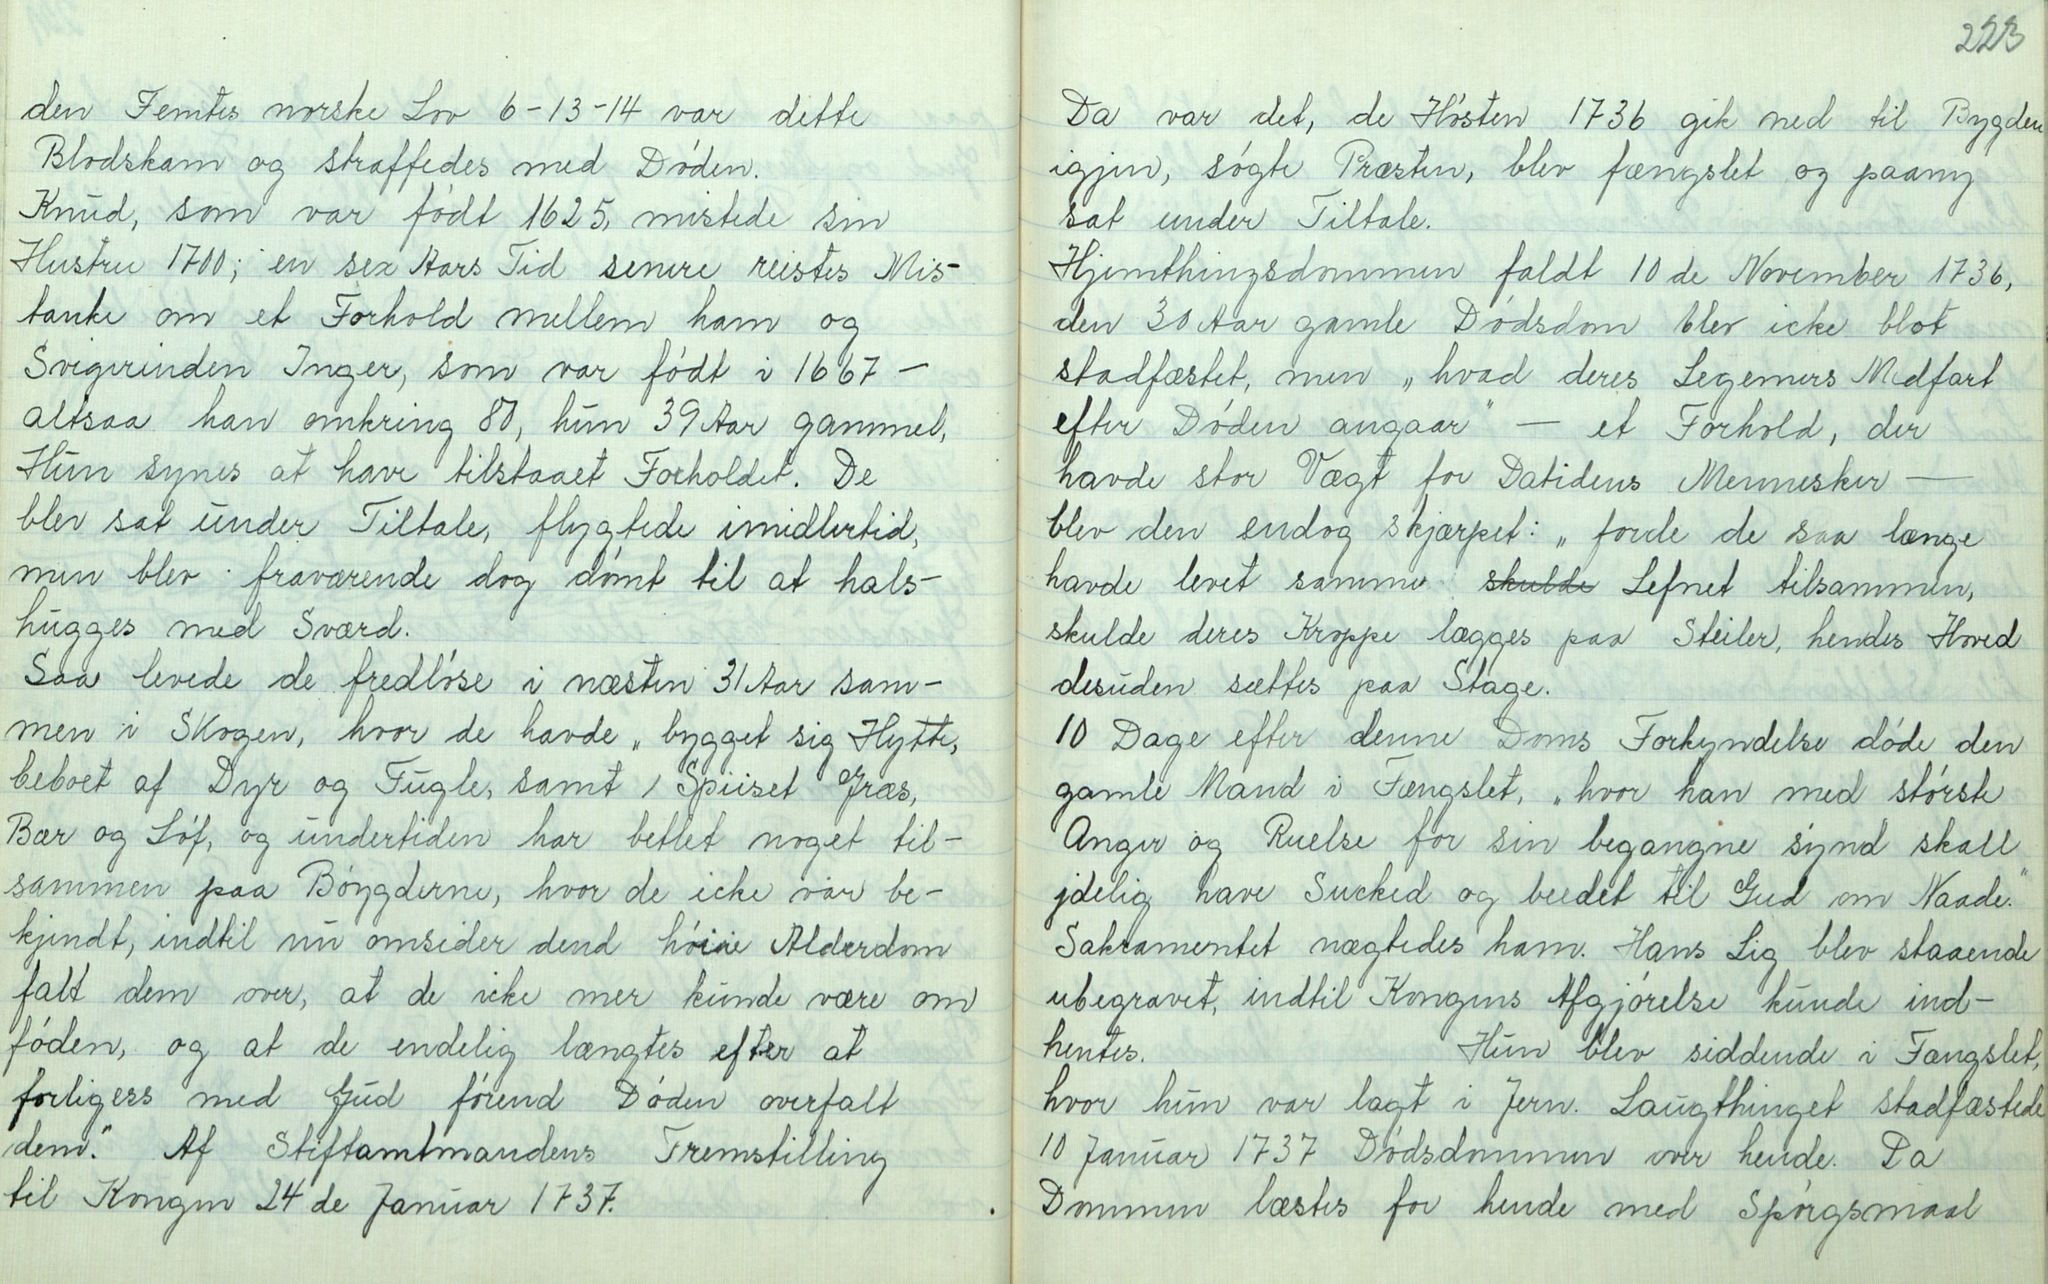 den Femtes norske Lov 6-13-14 var dette
Blodskam og straffedes med Døden.
Knud, som var født 1625, mistede sin
Hustru 1700; en sex Aars Tid senere reistes Mis-
tanke om et Forhold mellem ham og
Svigerinden Inger, som var født i 1667 —
altsaa han omkring 80, hun 39 Aar gammel,
Hun synes at have tilstaaet Forholdet. De
blev sat under Tiltale, flygtede imidlertid,
men blev fraværende dog dømt til at hals-
hugges med Sværd.
Saa levede de fredløse i næsten 31 Aar sam-
men i Skogen, hvor de havde „bygget sig Hytte,
beboet af Dyr og Fugle, samt / Spiiset Græs,
Bær og Løf, og undertiden har betlet noget til-
sammen paa Bøygderne, hvor de icke var be-
kjendt, indtil nu omsider dend høiie Alderdom
falt dem over, at de icke mer kunde være om
føden, og at de endelig længtes efter at
forligess med Gud førend Døden overfalt
dem." Af Stiftamtmandens Fremstilling
til Kongen 24 de Januar 1737.
223
Da var det, de Høsten 1736 gik ned til Bygden
igjen, søgte Præsten, blev fængslet og paany
sat under Tiltale.
Hjemthingsdommen faldt 10 de November 1736,
den 30 Aar gamle Dødsdom blev icke blot
stadfæstet, men „hvad deres Legemers Medfart
efter Døden angaar" — et Forhold, der
havde stor Vægt for Datidens Mennesker —
blev den endog skjærpet: „forde de saa længe
havde levet samme skulde Lefnet tilsammen,
skulde deres Kroppe lægges paa Steiler, hendes Hoved
desuden sættes paa Stage.
10 Dage efter denne Doms Forkyndelse døde den
gamle Mand i Fængslet, „hvor han med største
Anger og Ruelse for sin begangne synd skall
jdelig have Sucked og beedet til Gud om Naade."
Sakramentet nægtedes ham. Hans Lig blev staaende
ubegravet, indtil Kongens Afgjørelse kunde ind-
hentes. Hun blev siddende i Fængslet,
hvor hun var lagt i Jern. Laugthinget stadfæstede
10 Januar 1737 Dødsdommen over hende. Da
Dommen læstes for hende med Spørgsmaal